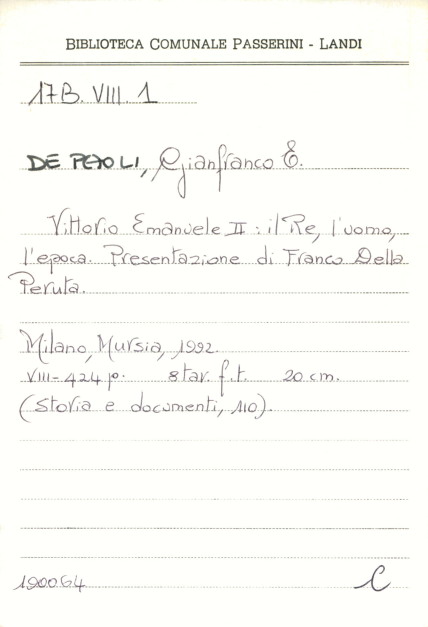 BIBLIOTECA COMUNALE PASSERINI - LANDI
17B. VIII. 1
DE PAOLI, Gianfranco E.
Vittorio Emanuele II : il Re, l'uomo,
l'epoca. Presentazione di Franco Della
Peruta.
Milano, Mursia, 1992.
VIII-424 p. 8 tav. f.t. 20 cm.
(Storia e documenti, 110).
190064 C